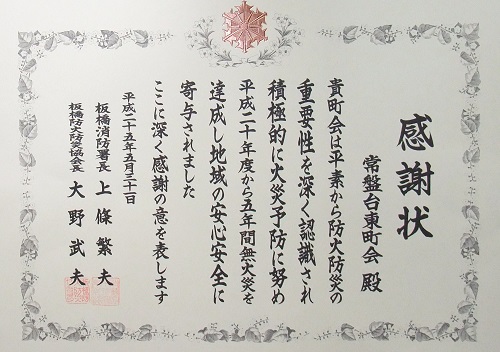 感謝状
常盤台東町会 殿
貴町会は平素から防火防災の
重要性を深く認識され
積極的に火災予防に努め
平成二十年度から五年間無火災を
達成し地域の安心安全に
寄与されました
ここに深く感謝の意を表します
平成二十五年五月三十日
板橋消防署長 上條繁夫
板橋防火防災協会長 大野武夫